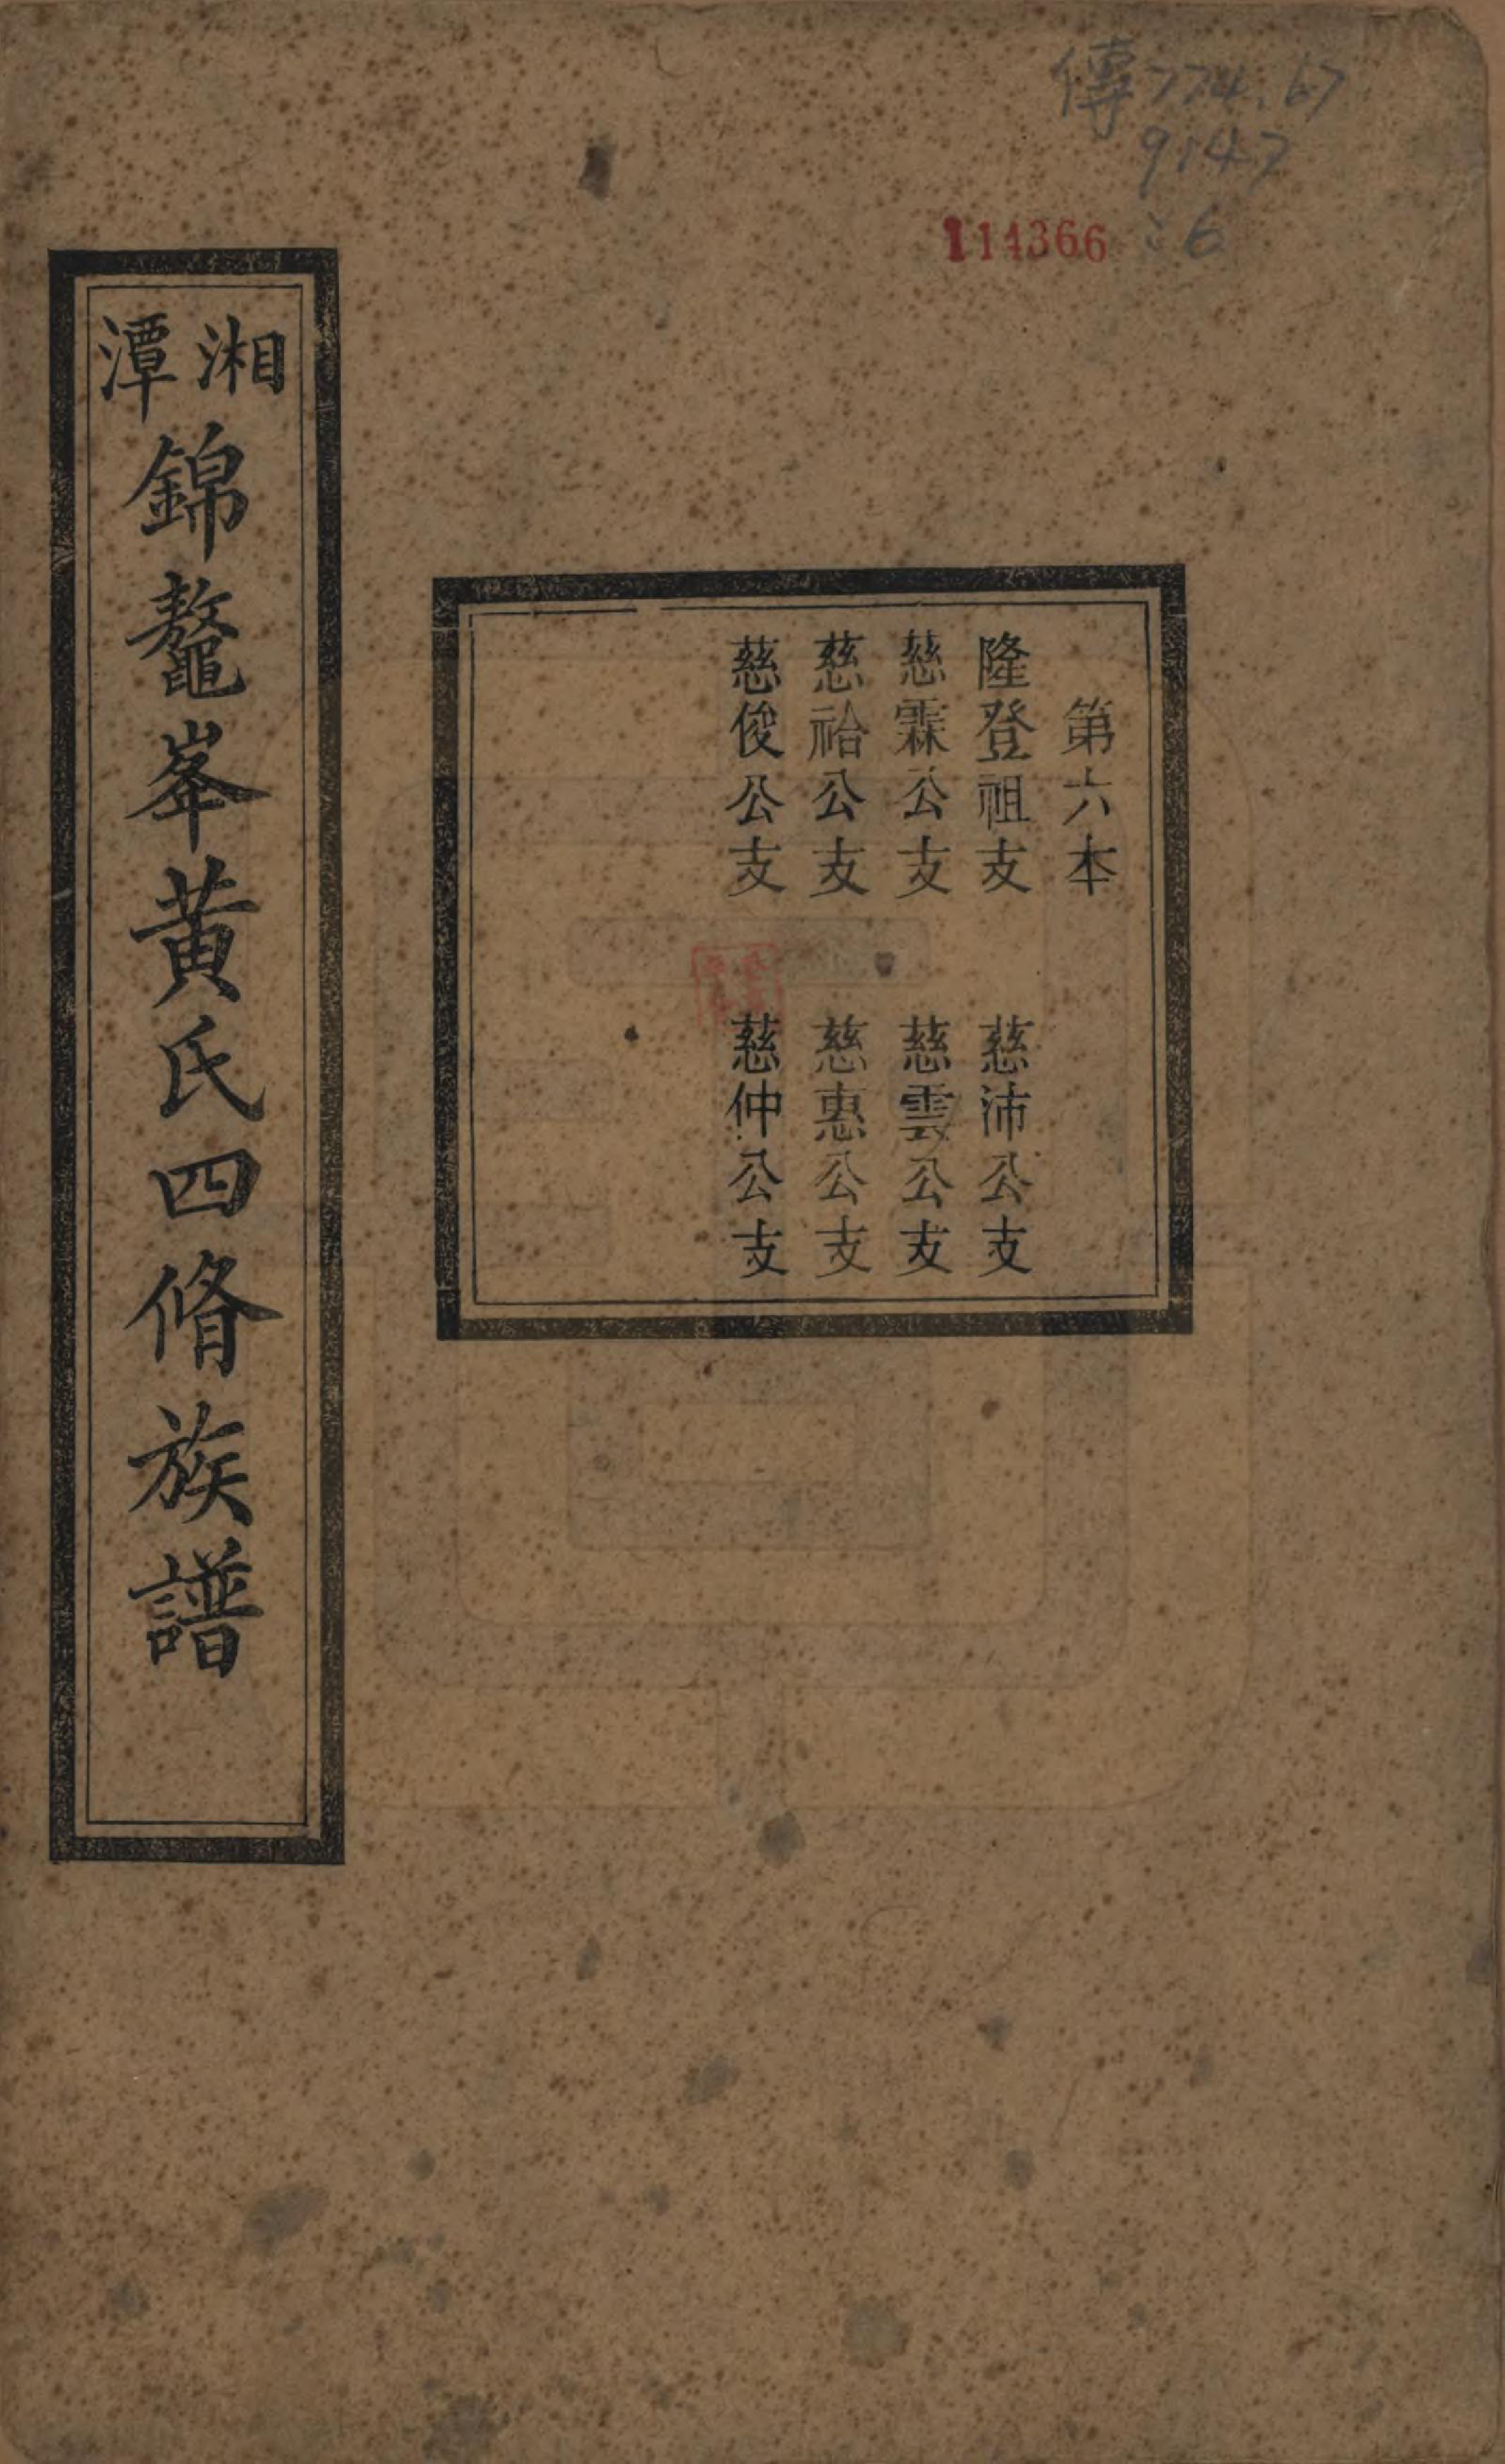 傳774.67
9147
:6
114366
第六本
隆登祖支 慈沛公支
慈霖公支 慈雲公支
慈祫公支 慈惠公支
慈俊公支 慈仲公支
湘潭錦鼇峯黃氏四脩族譜